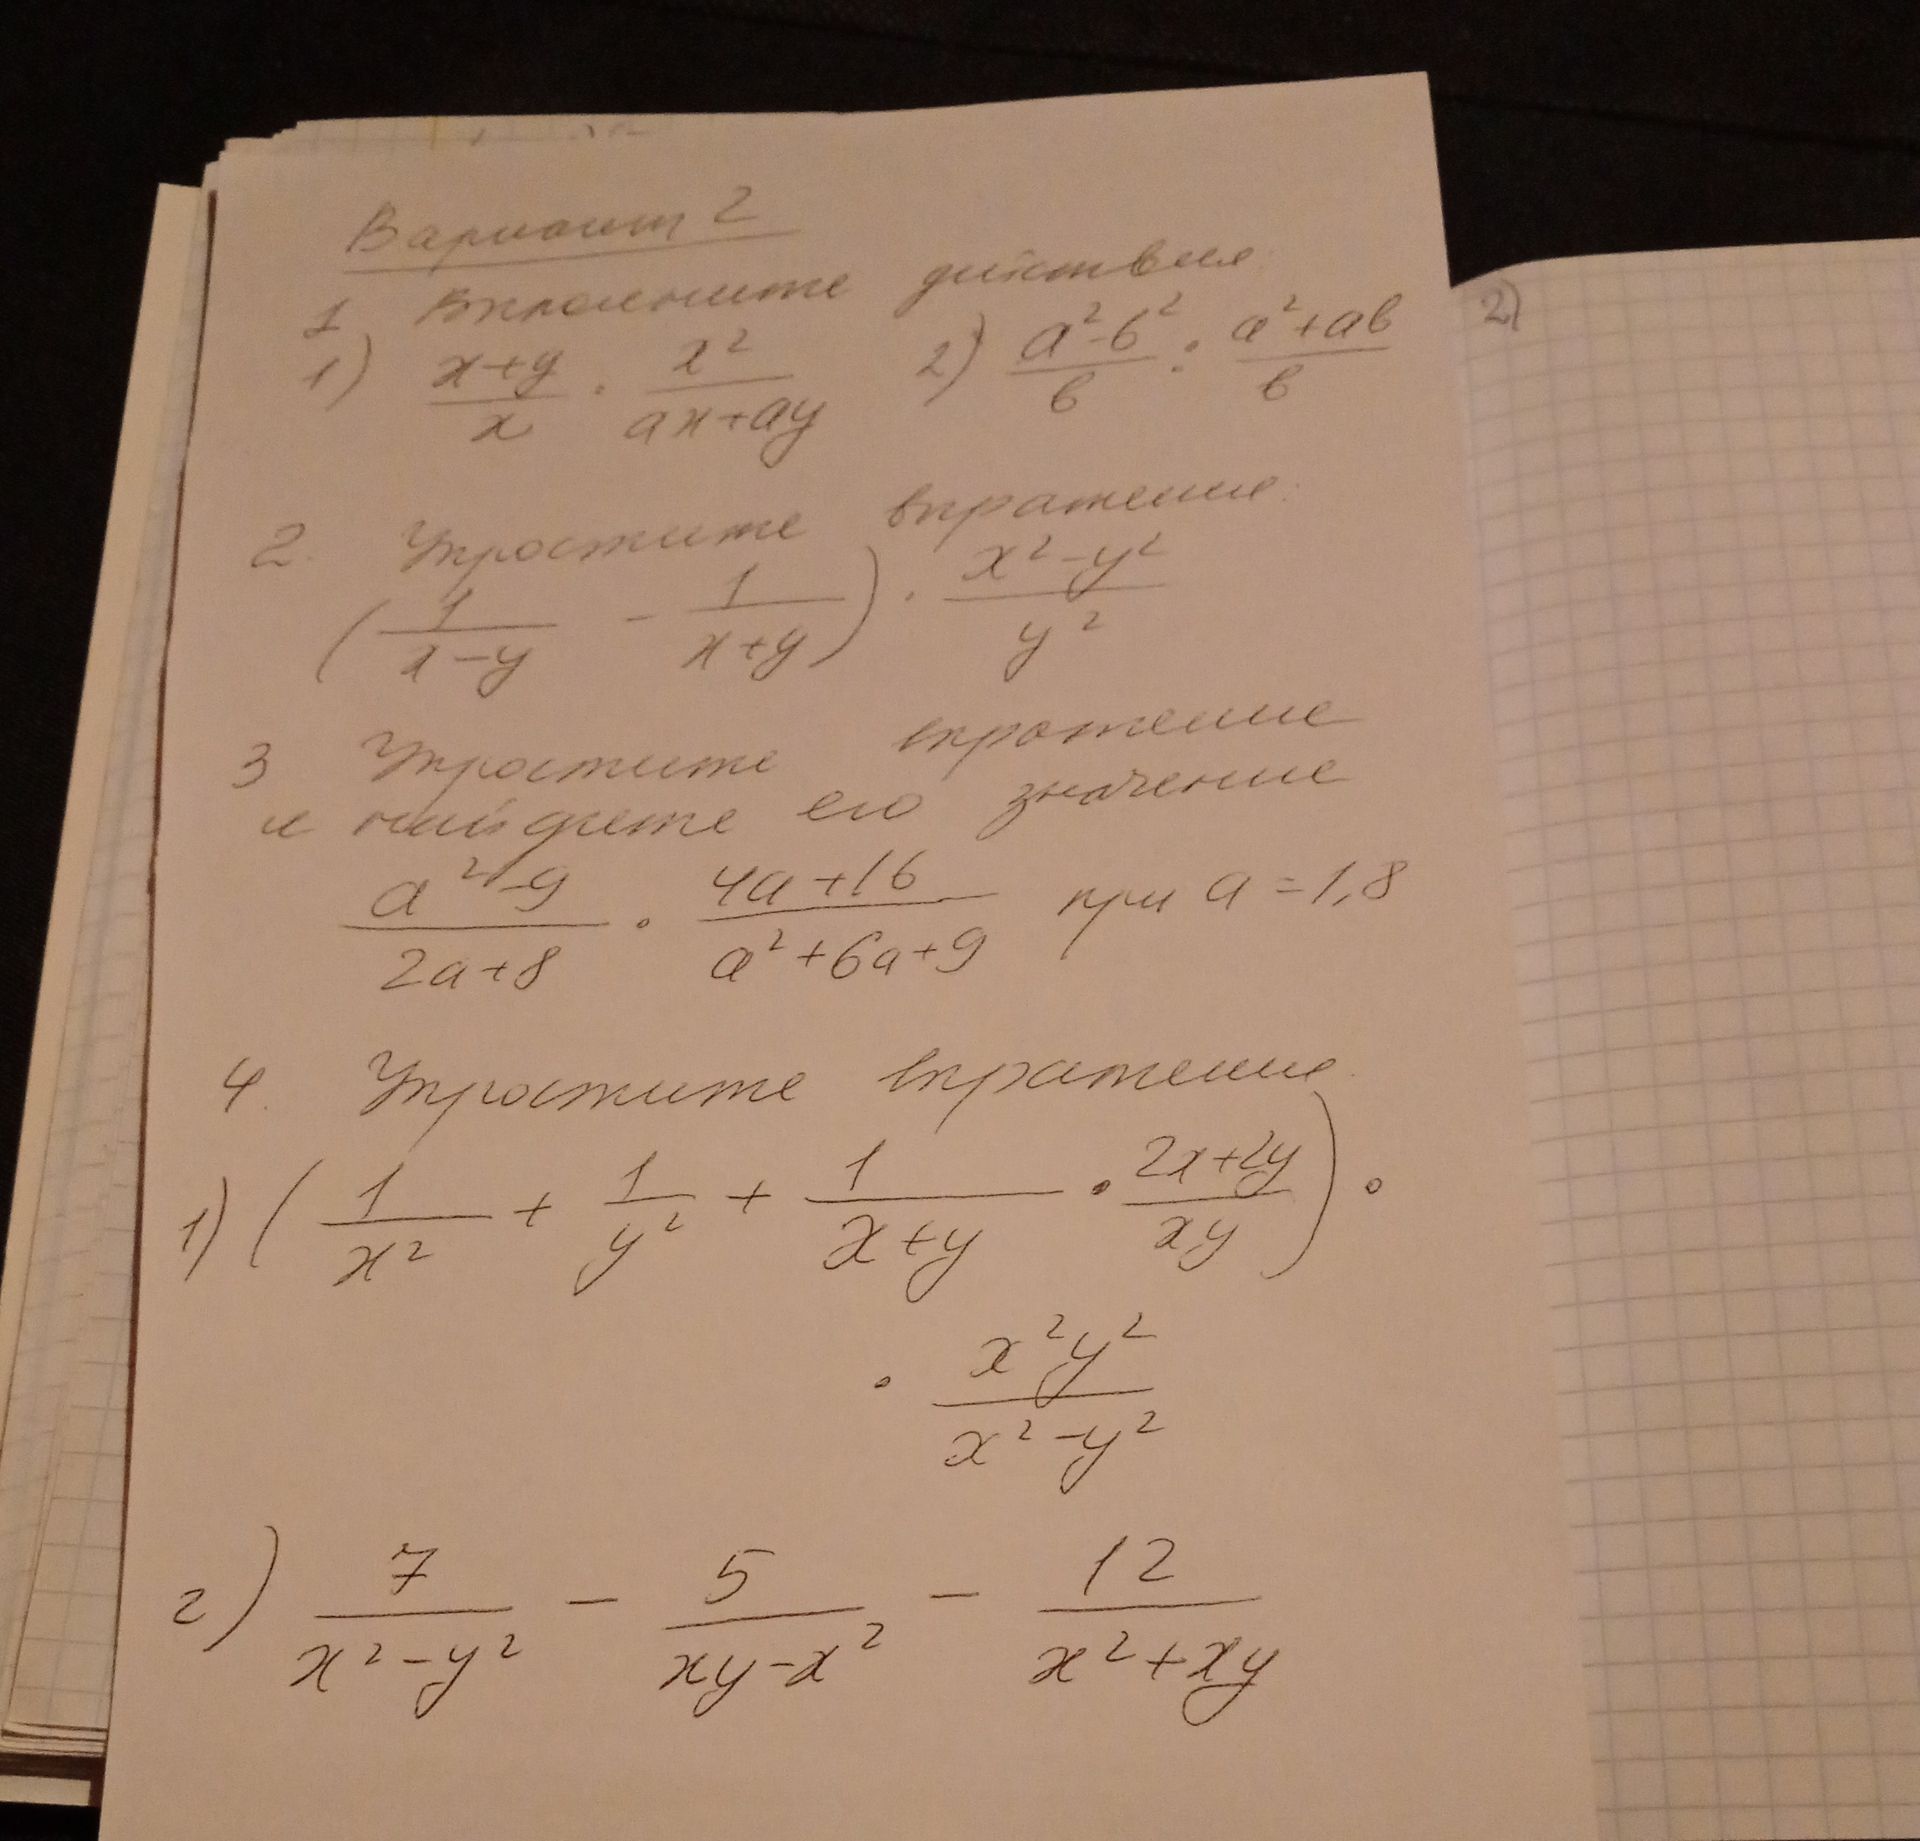 Вариант 2
1 Выполните действия
1) (x+y)/x · x²/(ax+ay) 2) (a²-b²)/b : (a²+ab)/b
2. Упростите выражение:
(1/(x-y) - 1/(x+y)) · (x²-y²)/y²
3 Упростите выражение
и найдите его значение
(a²-9)/(2a+8) · (4a+16)/(a²+6a+9) при a=1,8
4. Упростите выражение.
1) (1/x² + 1/y² + 1/(x+y) · (2x+2y)/(xy)) ·
· x²y²/(x²-y²)
2) 7/(x²-y²) - 5/(xy-x²) - 12/(x²+xy)
2)